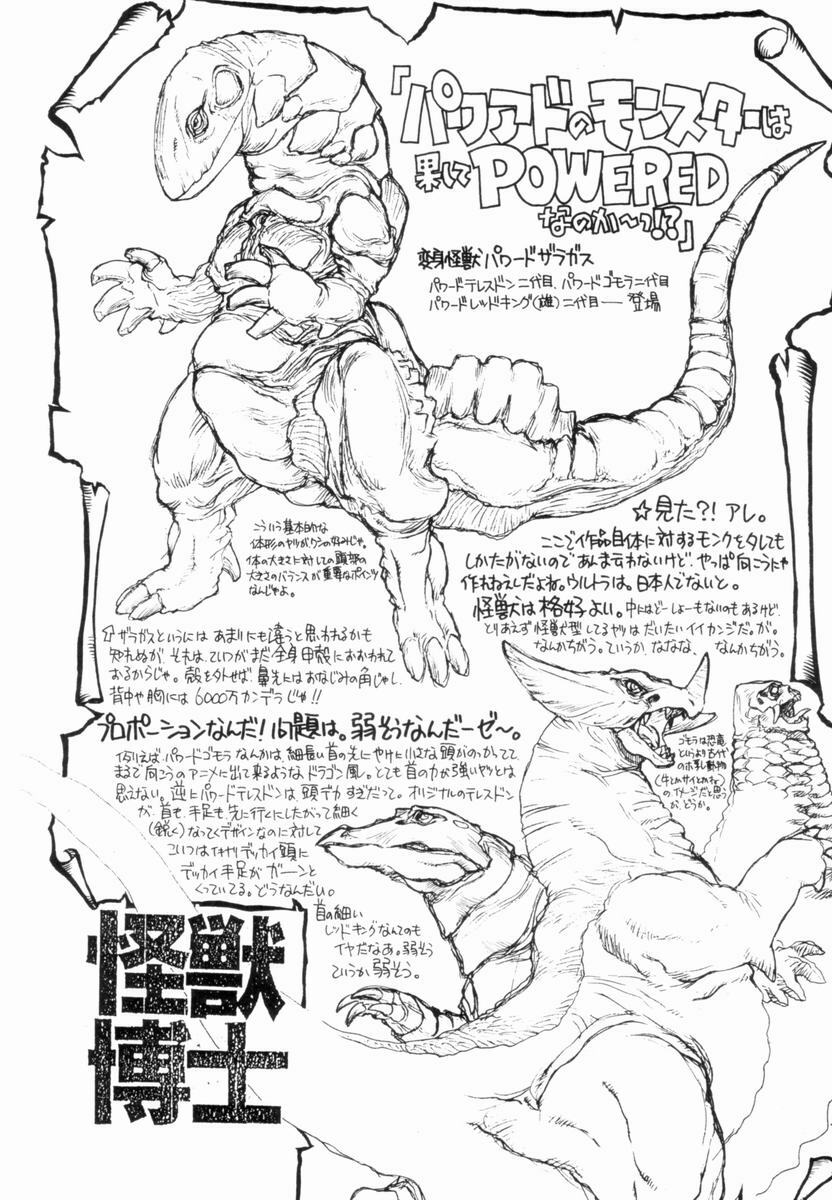 「パワァドのモンスターは
果してPOWERED
なのか〜っ!?」
変身怪獣パワードザラガス
パワードテレスドン二代目、パワードゴモラ二代目
パワードレッドキング(雄)二代目── 登場
こういう基本的な
体形のヤツがワシの好みじゃ。
体の大きさに対しての頭部の
大きさのバランスが重要なポインツ
なんじゃよ。
☆見た?! アレ。
ここで作品自体に対するモンクをタレても
しかたがないのであんま云わないけど、やっぱ向こうにゃ
作れねえんだよね。ウルトラは。日本人でないと。
怪獣は格好よい。中にはどーしょーもないのもあるけど、
とりあえず怪獣型してるヤツはだいたいイイカンジだ。が。
なんかちがう。ていうか、ななな、なんかちがう。
ザラガスというには あまりにも違うと思われるかも
知れぬが、それは、こいつがまだ全身甲殻におおわれて
おるからじゃ。殻を外せば、鼻先にはおなじみの角じゃし、
背中や胸には6000万カンデラじゃ!!
プロポーションなんだ!問題は。弱そうなんだーゼ〜。
例えば、パワードゴモラなんかは、細長い首の先にやけに小さな頭がのっかてて
まるで向こうのアニメに出て来るようなドラゴン風。とても首の力が強いヤツとは
思えない。逆にパワードテレスドンは、頭デカすぎだって。オリジナルのテレスドン
が、首も、手足も、先に行くにしたがって細く
(鋭く)なってくデザインなのに対して
こいつはデッカイ頭に
デッカイ手足がガーンと
くっついてる。どうなんだい。
ゴモラは恐竜
というより古代
のホ乳動物
(牛とかサイとかね)
のイメージだと思う
が、どうか。
首の細い
レッドキングなんてのも
イヤだなあ。弱そう
ていうか弱そう。
怪獣
博士